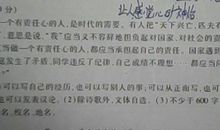 分）
让人感觉心旷神怡
一个有责任心的人，是时代的需要。有人把“天下兴亡，匹夫有
意思是说，“我”应当义不容辞地担负起对国家、对社会的责
做一个有责任心的人，都应当承担起自己的责任。国家遇到
发生了矛盾，同学违反了纪律，自己成绩不理想……都应当
可以写自己的经历，也可以写别人的事，可以从正面写，也可
可以发表议论。(2)除诗歌外，文体自选。(3)不少于600字
名、校名、地名。